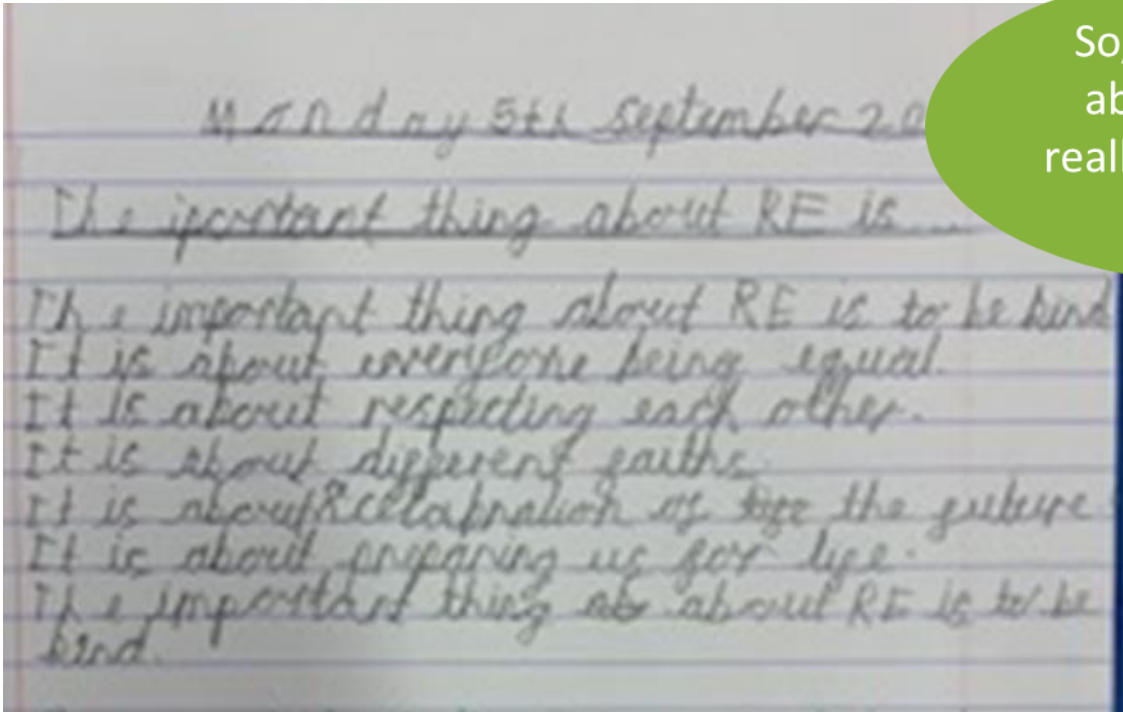 Monday 5th september 20
So,
ab
reall
The iportant thing about RE is...
The important thing about RE is to be kind
It is about everyone being equal.
It is about respecting each other.
It is about different faiths.
It is about a celabration of the future
It is about preparing us for life.
The important thing ab about RE is to be
kind.